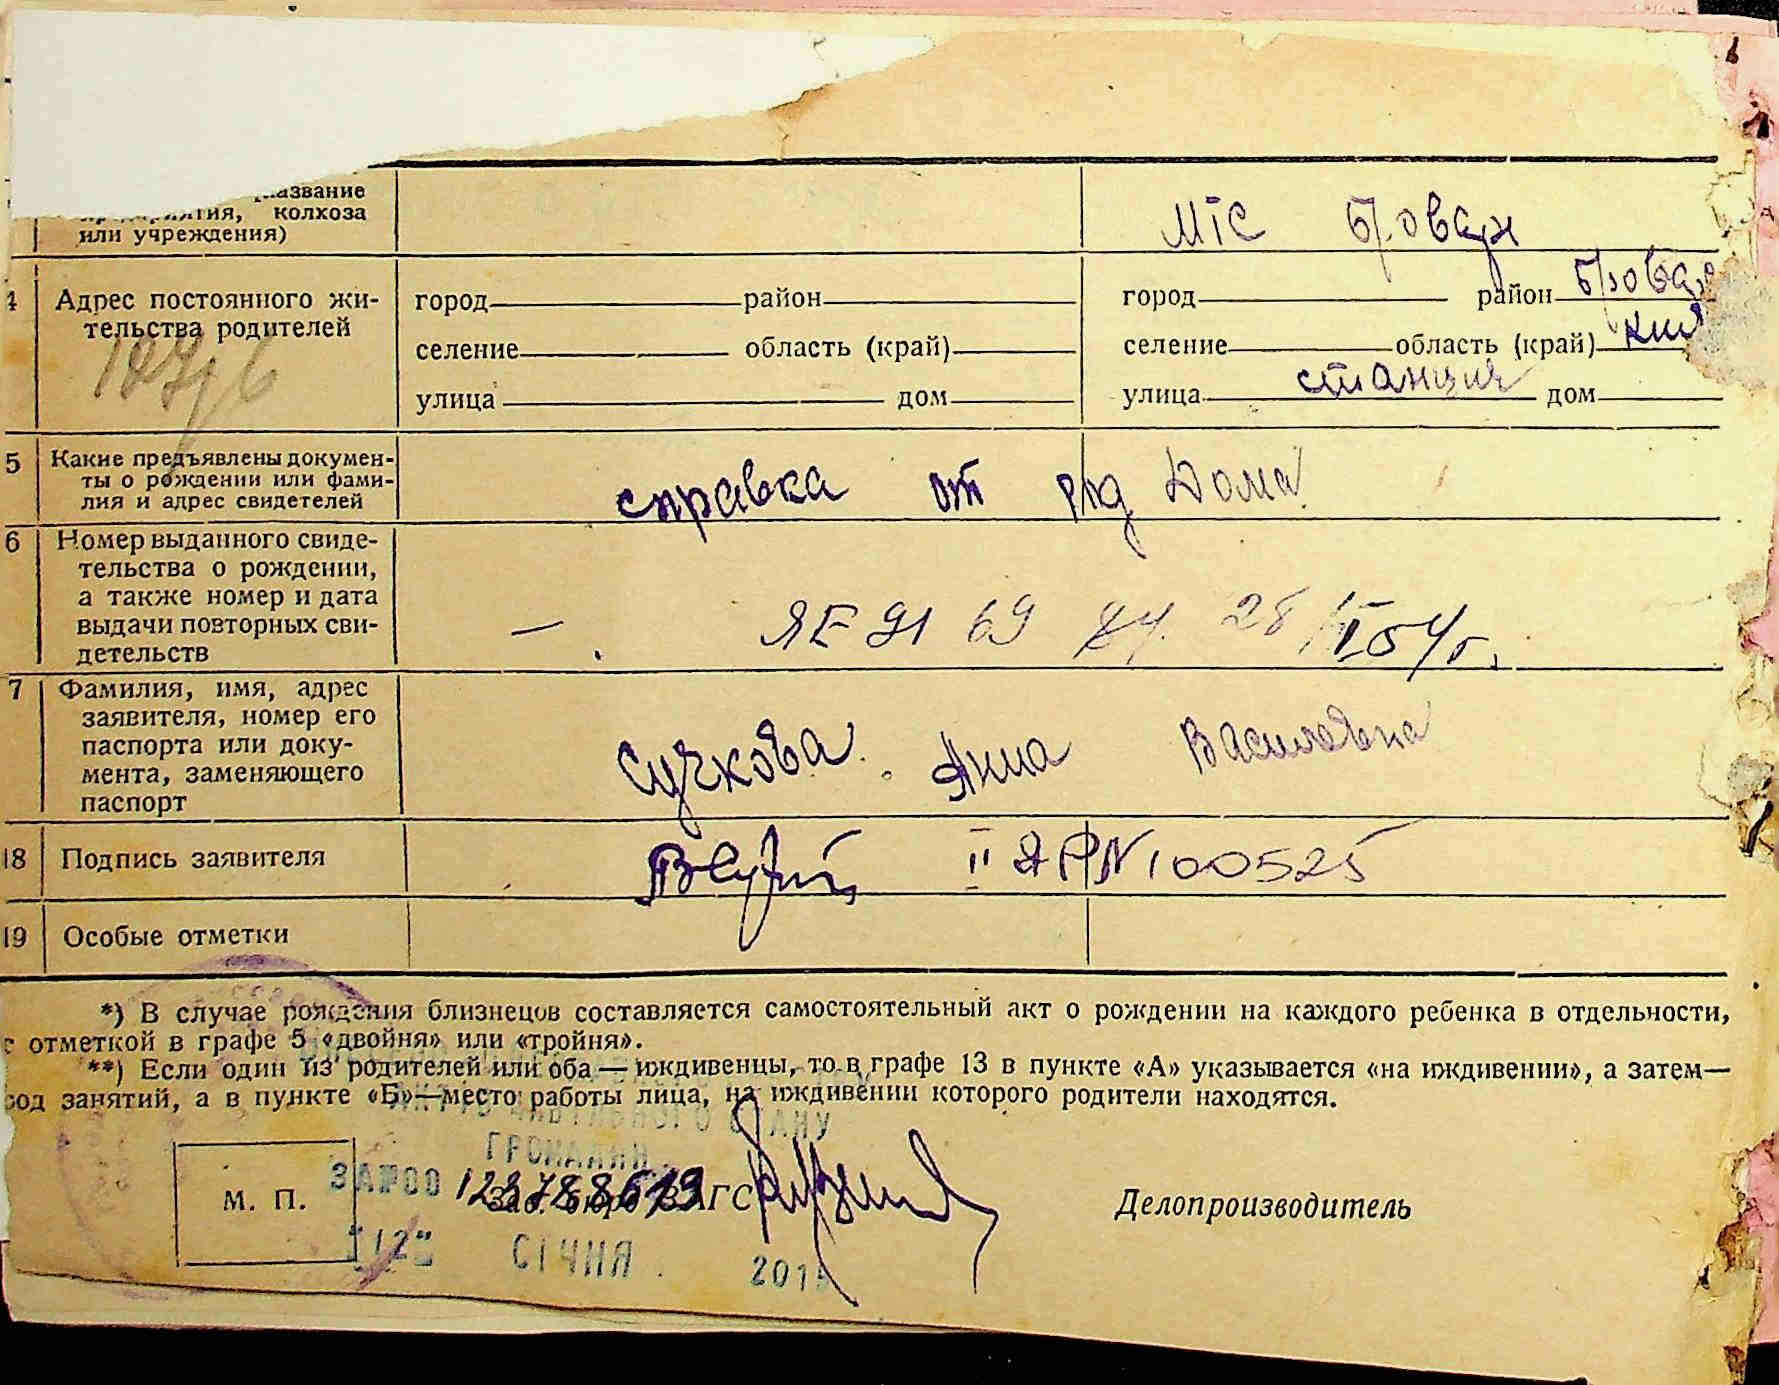 название
предприятия, колхоза
или учреждения)
МТС Бровар
4 Адрес постоянного жи-
тельства родителей
город район
селение область (край)
улица дом
город район Бровар
селение область (край) Киев
улица станция дом
5 Какие предъявлены докумен-
ты о рождении или фами-
лия и адрес свидетелей
справка от род Дома
6 Номер выданного свиде-
тельства о рождении,
а также номер и дата
выдачи повторных сви-
детельств
— ЯЕ 91 69 28 54 г.
7 Фамилия, имя, адрес
заявителя, номер его
паспорта или доку-
мента, заменяющего
паспорт
Сучкова Анна Василевна
18 Подпись заявителя
II ЯР N 100525
19 Особые отметки
*) В случае рождения близнецов составляется самостоятельный акт о рождении на каждого ребенка в отдельности,
с отметкой в графе 5 «двойня» или «тройня».
**) Если один из родителей или оба — иждивенцы, то в графе 13 в пункте «А» указывается «на иждивении», а затем—
род занятий, а в пункте «Б»—место работы лица, на иждивении которого родители находятся.
СТАНУ
ГРОМАДЯН
М. П.
Зав. бюро ЗАГС
Делопроизводитель
"12" СІЧНЯ 2015